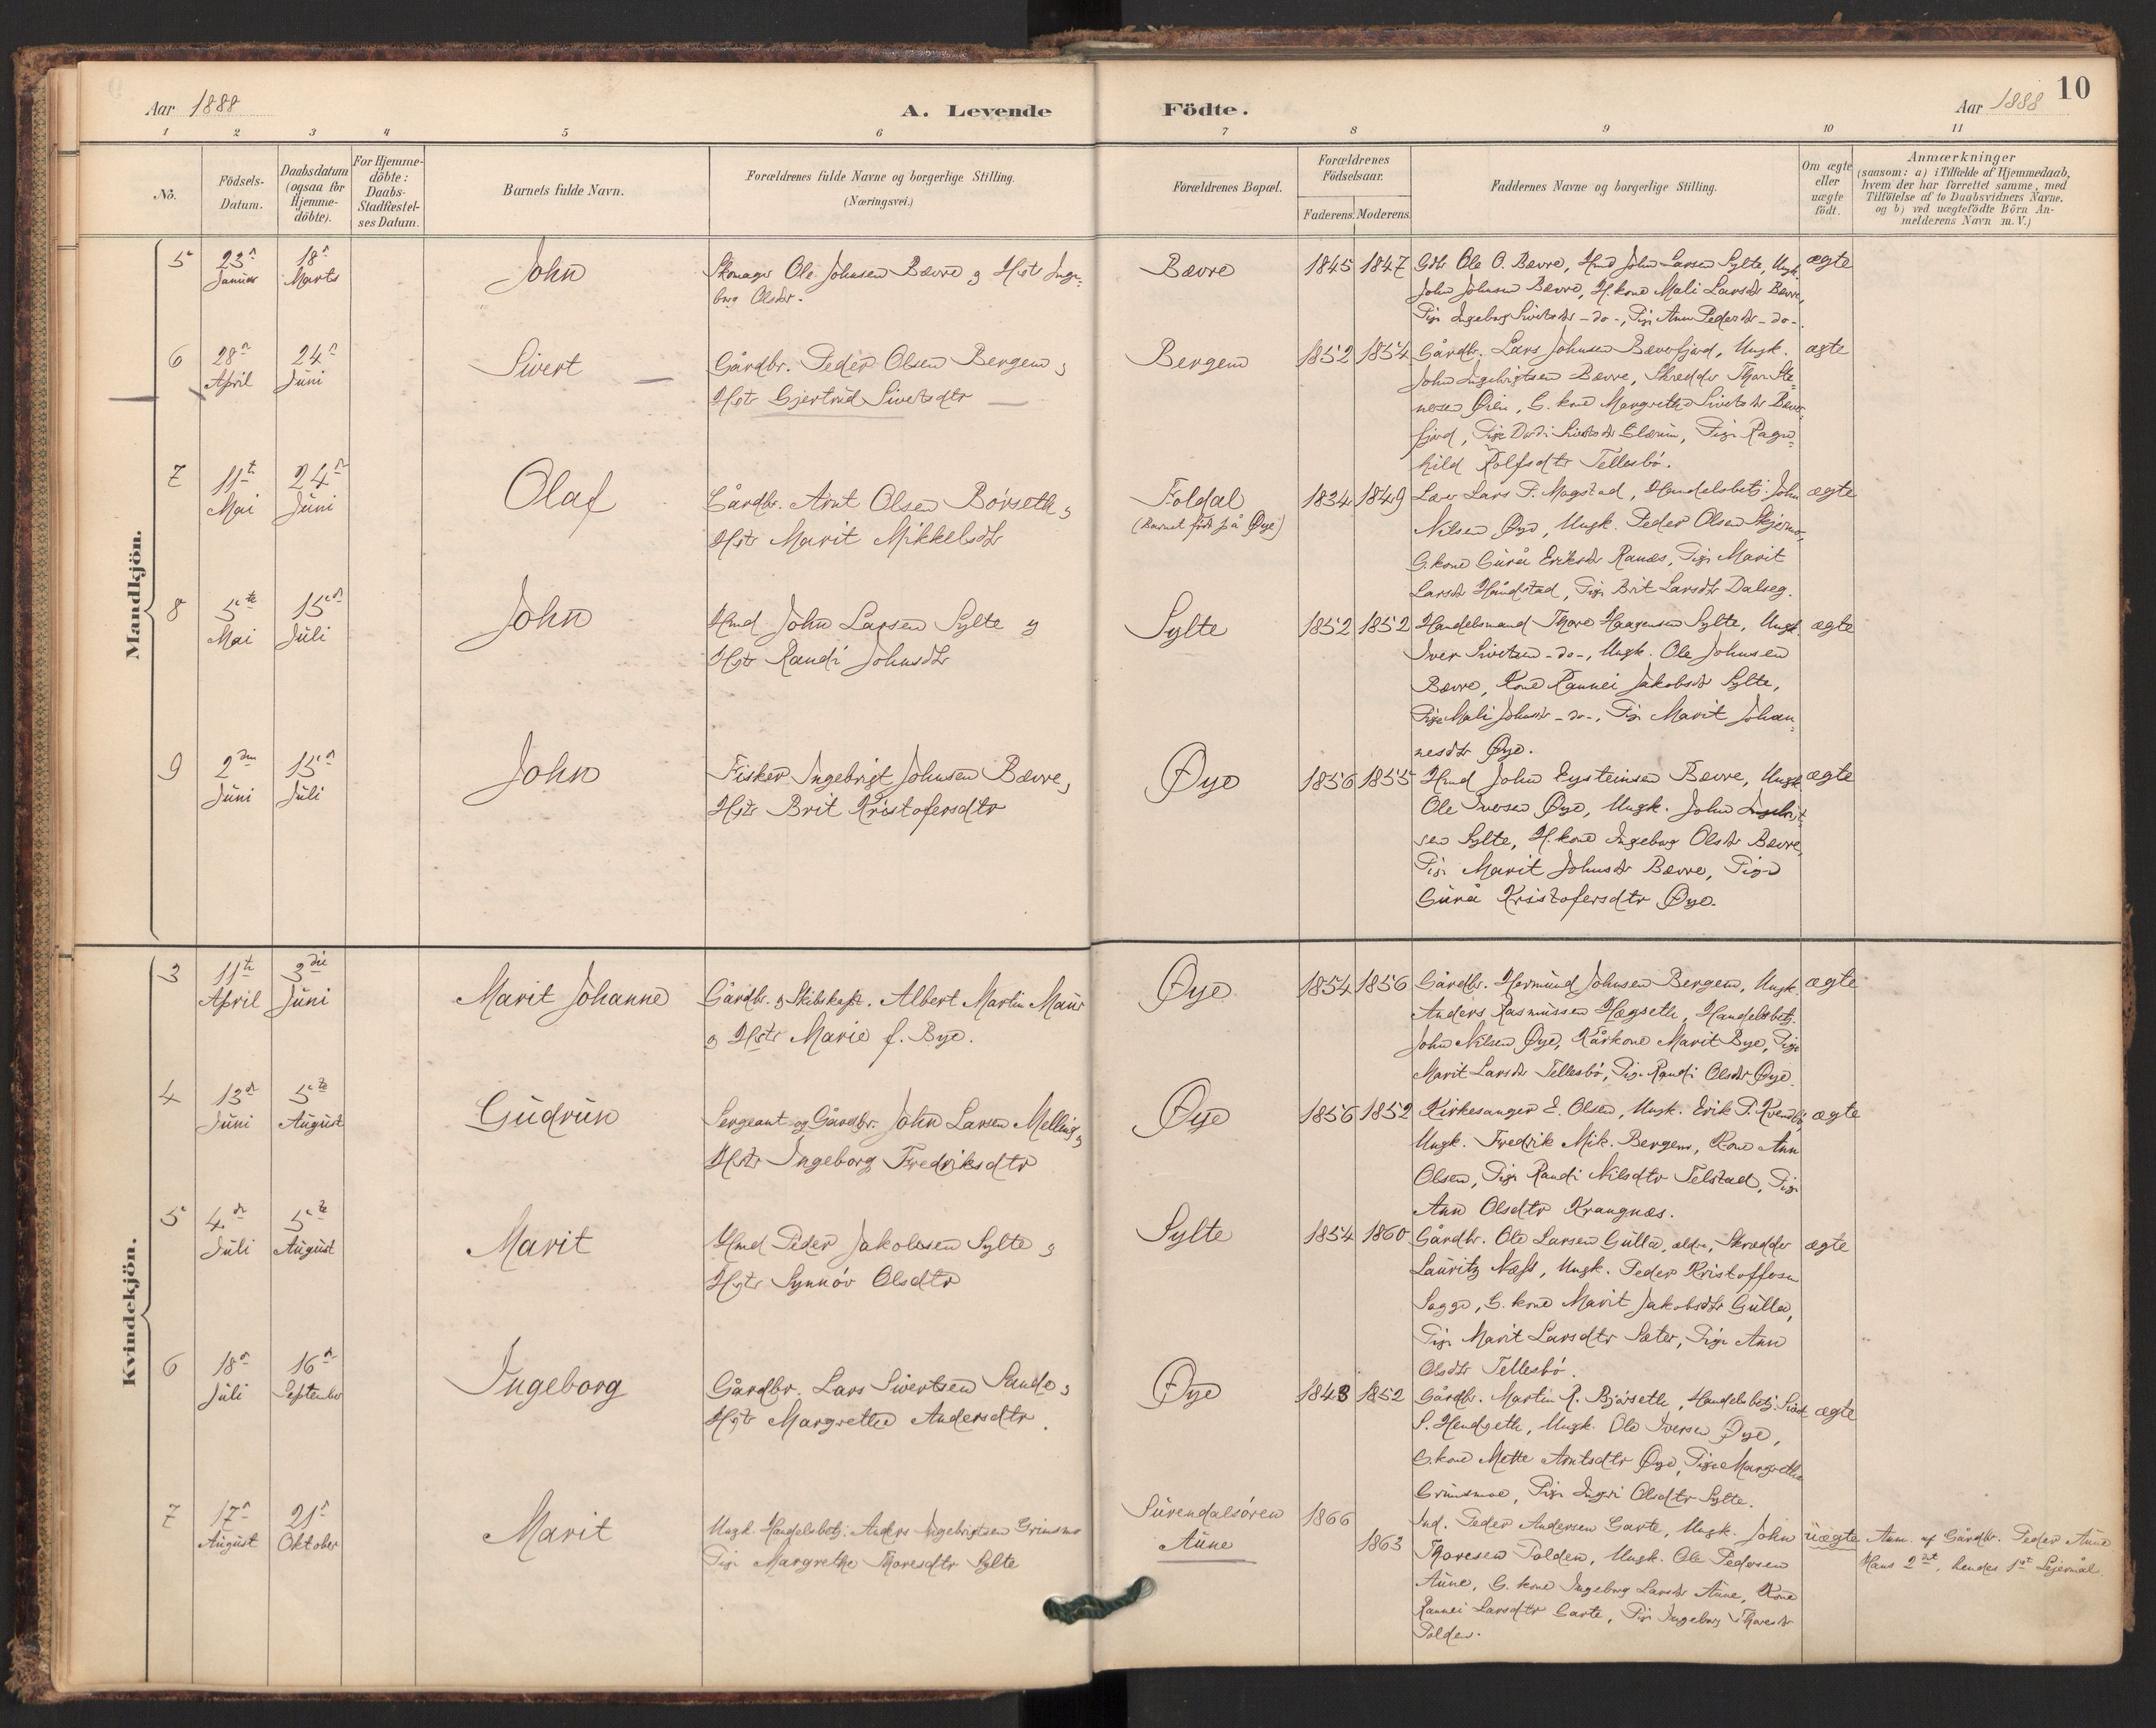 10
Aar 1888
A. Levende Födte.
Aar 1888
1 2 3 4 5 6 7 8 9 10 11
No.
Födsels-
Datum.
Daabsdatum
(ogsaa for
Hjemme-
döbte).
For Hjemme-
döbte:
Daabs-
Stadfæstel-
ses Datum.
Barnets fulde Navn.
Forældrenes fulde Navne og borgerlige Stilling.
(Næringsvei.)
Forældrenes Bopæl.
Forældrenes
Födselsaar.
Faderens. Moderens.
Faddernes Navne og borgerlige Stilling.
Om ægte
eller
uægte
födt.
Anmærkninger
(saasom: a) i Tilfælde af Hjemmedaab,
hvem der har forrettet samme, med
Tilföielse af to Daabsvidners Navne.
og b) ved uægtefödte Börn An-
melderens Navn m.V.)
Mandkjön.
5
23
Januar
18
Marts
John
Skomager Ole Johnsen Bævre og Hst Inge-
borg Olsdr.
Bævre
1845 1847
Gdb Ole O. Bævre, Hmd John Larsen Sylte, Ungk.
John Johnsen Bævre, H.kone Mali Larsdr Bævre,
Pige Ingeborg Sivertsdr -do-, Pige Ann Pedersdr -do-.
ægte
6
28
April
24
Juni
Sivert
Gårdbr. Peder Olsen Bergem og
Hstr Gjertrud Sivertsdtr
Bergem
1852 1854
Gårdbr. Lars Johnsen Bæverfjord, Ungk.
John Ingebrigtsen Bævre, Skrædder Thor Ste-
nersen Øien, G. kone Margrethe Sivertsdr Bæver-
fjord, Pige Dordi Sivertsdr Glærum, Pige Ragn-
hild Rolfsdtr Tellesbö.
ægte
7
11te
Mai
24
Juni
Olaf
Gårdbr. Arnt Olsen Börseth og
Hstr Marit Mikkelsdtr
Foldal
(Barnet född på Øye)
1834 1849
Lærer Lars P. Magstad, Handelsbetj. John
Nilsen Øye, Ungk. Peder Olsen Skjermo,
G.kone Gurå Eriksdr Ranæs, Pige Marit
Larsdr Håndstad, Pige Brit Larsdtr Dalseg.
ægte
8
5te
Mai
15
Juli
John
Hmd John Larsen Sylte og
Hstr Randi Johnsdtr
Sylte
1852 1852
Handelsmand Thore Haagensen Sylte, Ungk.
Iver Sivertsen -do-, Ungk. Ole Johnsen
Bævre, Kone Rannei Jakobsdr Sylte,
Pige Mali Johnsdr -do-, Pige Marit Johan-
nesdtr Øye.
ægte
9
2den
Juni
15
Juli
John
Fisker Ingebrigt Johnsen Bævre og
Hstr Brit Kristofersdtr
Øye
1856 1855
Hmd John Eysteinsen Bævre, Ungk.
Ole Iversen Øye, Ungk. John Ingebrigt-
sen Sylte, H.kone Ingeborg Olsdr Bævre,
Pige Marit Johnsdr Bævre, Pige
Gurå Kristofersdtr Øye.
ægte
Kvindekjön.
3
11te
April
3die
Juni
Marit Johanne
Gårdbr. og Skibskapt. Albert Martin Maur
og Hstr Marie f. Bye.
Øye
1854 1856
Gårdbr. Hermund Johnsen Bergem, Ungk.
Anders Rasmussen Hægseth, Handelsbetj.
John Nilsen Øye, Kårkone Marit Bye, Pige
Marit Larsdr Tellesbö, Pige Randi Olsdtr Øye.
ægte
4
13
Juni
5te
August
Gudrun
Sergeant og Gårdbr. John Larsen Melling og
Hstr Ingeborg Fredriksdtr
Øye
1856 1852
Kirkesanger E. Olsen, Ungk. Erik P. Kvendbö,
Ungk. Fredrik Mik. Bergem, Kone Ann
Olsen, Pige Randi Nilsdtr Telstad, Pige
Ann Olsdtr Krangnæs.
ægte
5
4
Juli
5te
August
Marit
Hmd Peder Jakobsen Sylte og
Hstr Synnöv Olsdtr
Sylte
1854 1860
Gårdbr. Ole Larsen Gulla, ældre, Skrædder
Lauritz Næss, Ungk. Peder Kristoffersen
Sogge, G. kone Marit Jakobsdtr Gulla,
Pige Marit Larsdtr Sæter, Pige Ann
Olsdtr Tellesbö.
ægte
6
18
Juli
16
September
Ingeborg
Gårdbr. Lars Sivertsen Sande og
Hstr Margrethe Andersdtr.
Øye
1843 1852
Gårdbr. Martin R. Bjørseth, Handelsbetj.
S. Hendseth, Ungk. Ole Iversen Øye,
G.kone Mette Arntsdtr Øye, Pige Margrethe
Grimsmoe, Pige Ingri Olsdtr Sylte.
ægte
7
17
August
21
Oktober
Marit
Ungk. Handelsbetj. Anders Ingebrigtsen Grimsmo
Pige Margrethe Thoresdtr Sylte
Surendalsören
Aune
1866
1863
Ind. Peder Andersen Garte, Ungk. John
Thoresen Polden, Ungk. Ole Pedersen
Aune, G. kone Ingeborg Larsdr Aune, Kone
Rannei Larsdtr Garte, Pige Ingeborg Thoresdr
Polden.
uægte
Anm. af Gårdbr. Peder Aune
Hans 2det, hendes 1st Leiermål.